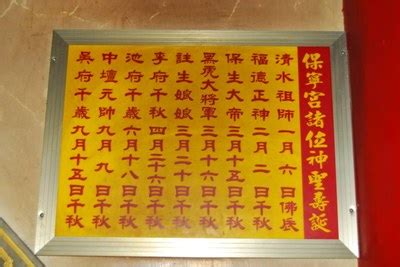 保寧宮諸位神聖壽誕
清水祖師一月六日佛辰
福德正神二月二日千秋
保生大帝三月十五日千秋
黑虎大將軍三月十六日千秋
註生娘娘三月二十日千秋
李府千歲四月二十六日千秋
池府千歲六月十八日千秋
中壇元帥九月九日千秋
吳府千歲九月十五日千秋